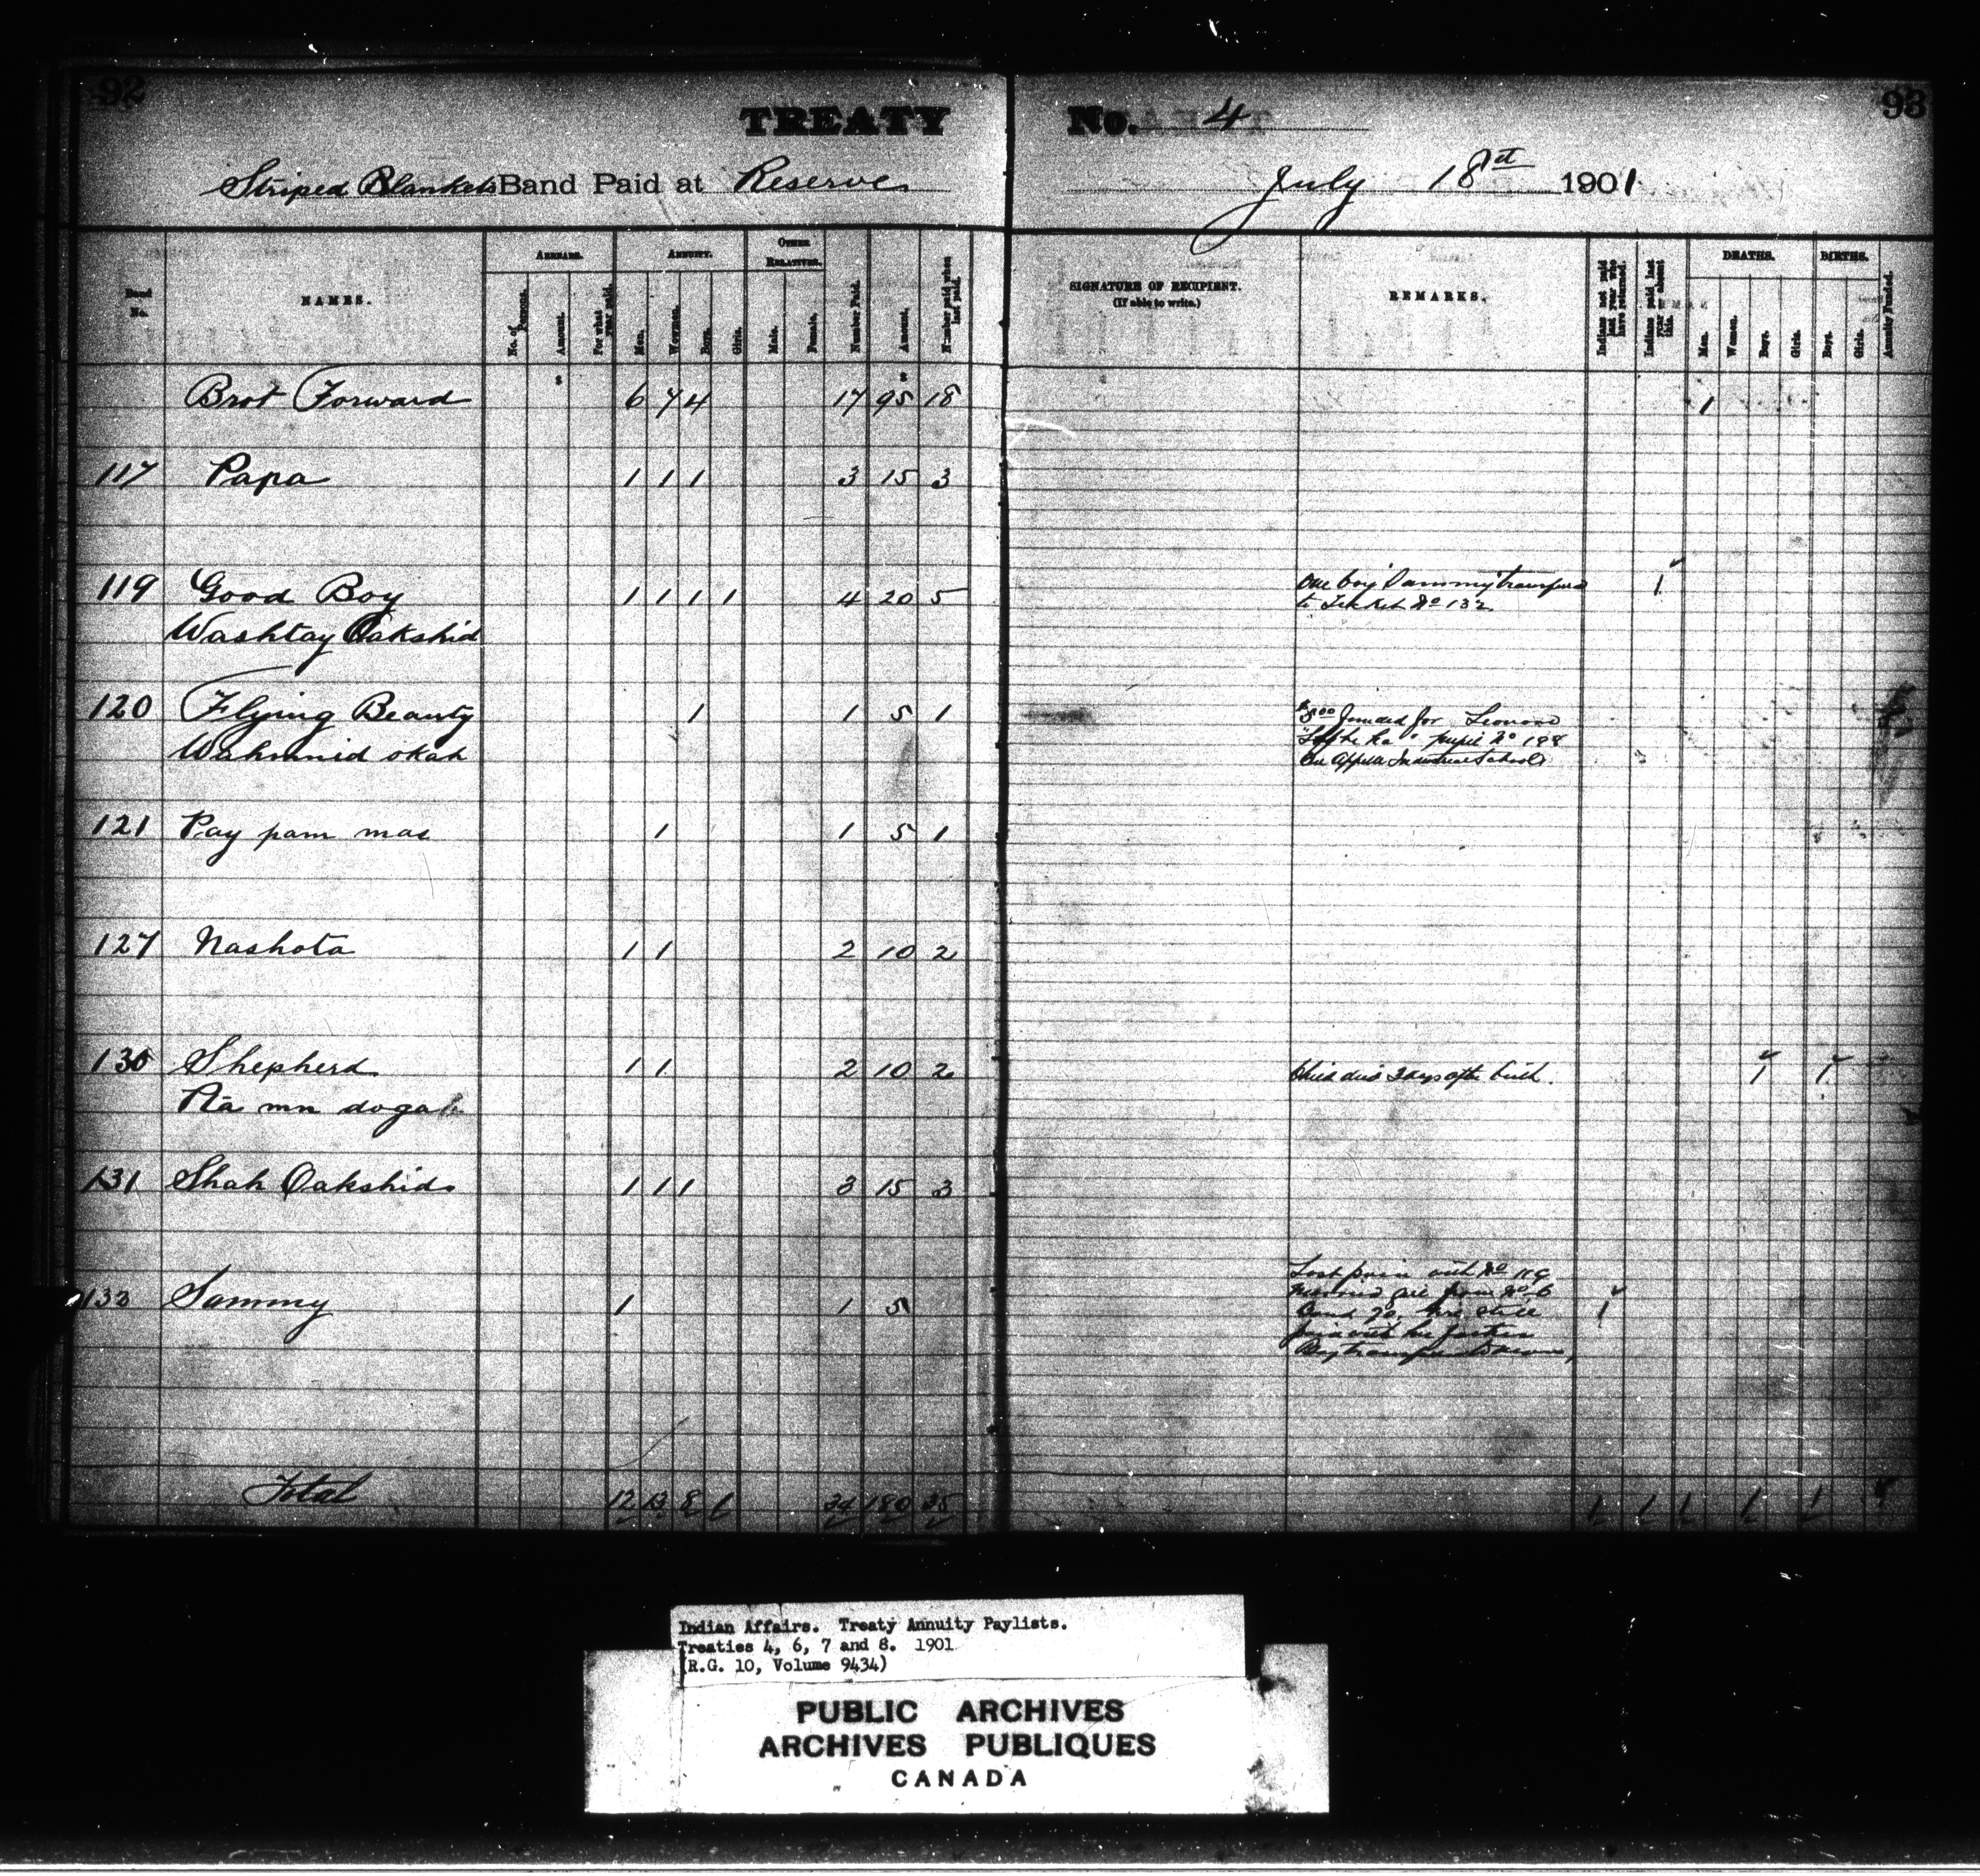 92
TREATY No. 4
93
Striped Blankets Band Paid at Reserve July 18st 1901
Band No.
NAMES.
ARREARS.
No. of Persons.
Amount.
For what year paid.
ANNUITY.
Men.
Women.
Boys.
Girls.
OTHER RELATIVES.
Male.
Female.
Number Paid.
Amount.
Number paid when last paid.
SIGNATURE OF RECIPIENT.
(If able to write.)
REMARKS.
Indians not paid last year who have returned.
Indians paid last year absent this.
DEATHS.
Men.
Women.
Boys.
Girls.
BIRTHS.
Boys.
Girls.
Annuity Funded.
$ $
Brot Forward 6 7 4 17 95 18 1
117 Papa 1 1 1 3 15 3
119 Good Boy 1 1 1 1 4 20 5 One boy "Sammy" transferred 1
to Ticket No 132
Washtay Oakshid
120 Flying Beauty 1 1 5 1 $5.00 funded for
pupil No
Wahmnid okah Qu'Appelle Industrial School
121 Pay pam mas 1 1 5 1
127 Nashota 1 1 2 10 2
130 Shepherd 1 1 2 10 2 Child died 2 days after birth. 1 1
Ra mn dogah
131 Shah Oakshid 1 1 1 3 15 3
132 Sammy 1 1 5 1
Last paid with No 119
Married girl from No 6
Band
paid with her father
Boy transferred
Total 12 13 8 1 34 180 35 1 1 1 1 1
Indian Affairs. Treaty Annuity Paylists.
Treaties 4, 6, 7 and 8. 1901
(R.G. 10, Volume 9434)
PUBLIC ARCHIVES
ARCHIVES PUBLIQUES
CANADA